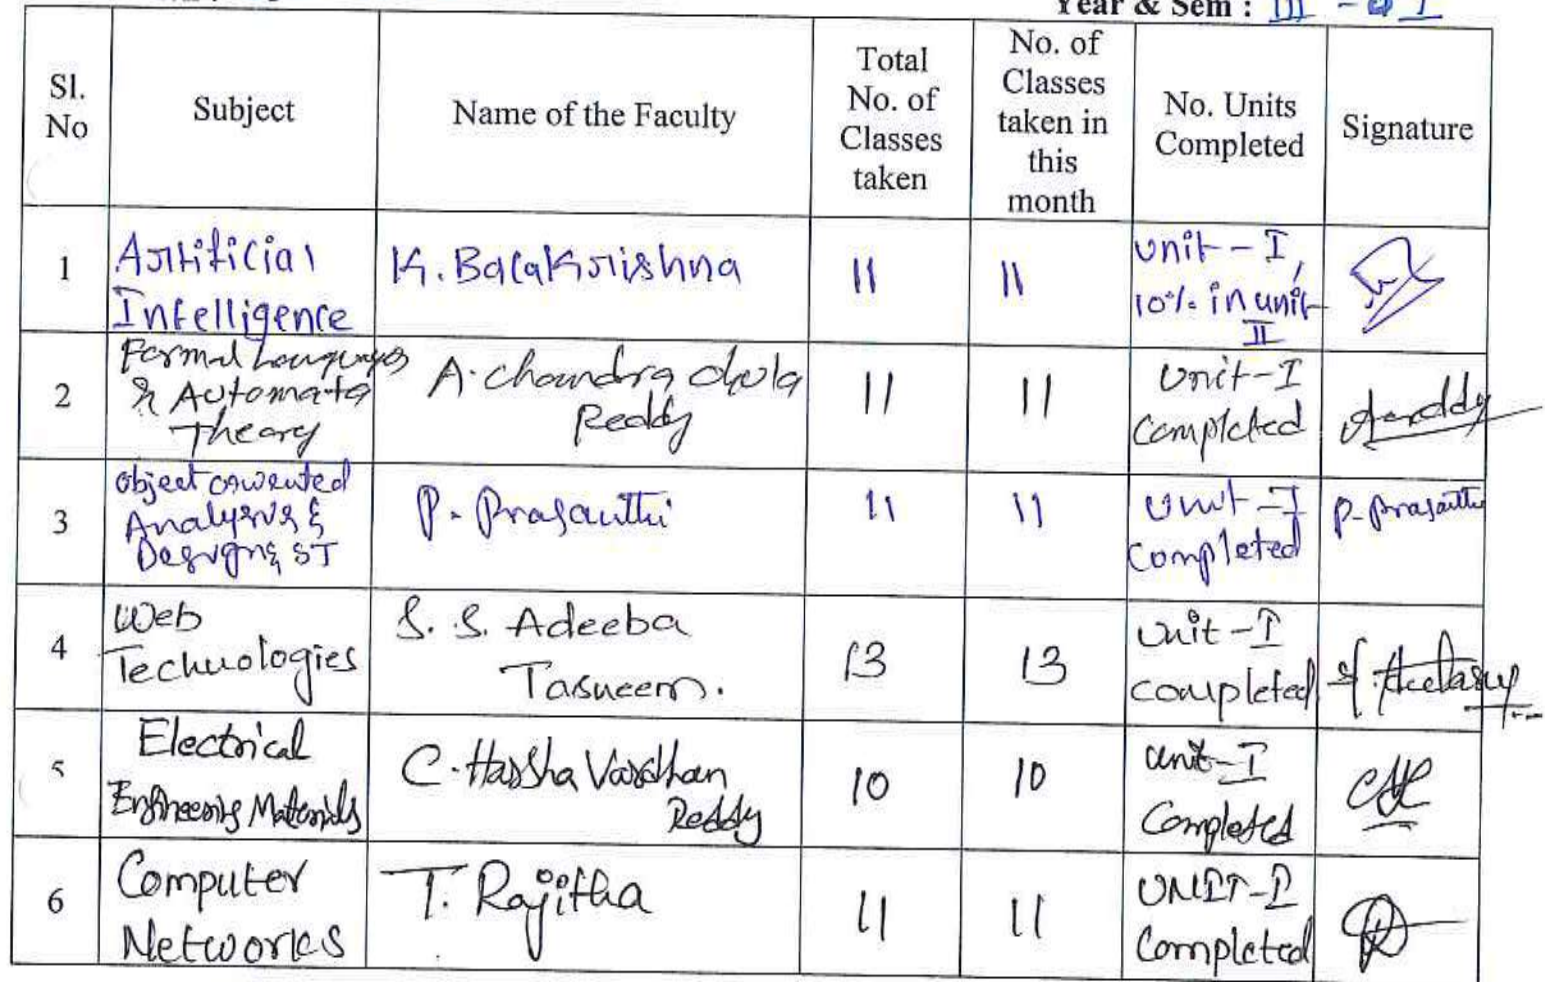 Year & Sem : III - I
Sl.
No
Subject
Name of the Faculty
Total
No. of
Classes
taken
No. of
Classes
taken in
this
month
No. Units
Completed
Signature
1
Artificial
Intelligence
K. Balakrishna
11
11
unit - I,
10% in unit
II
2
Formal Languages
& Automata
Theory
A. chandra obula
Reddy
11
11
Unit-I
Completed
3
object oriented
Analysis &
Design & ST
P. Prasanthi
11
11
Unit - I
Completed
P. Prasanthi
4
Web
Technologies
S. S. Adeeba
Tasneem.
13
13
Unit - I
completed
5
Electrical
Engineering Materials
C. Harsha Vardhan
Reddy
10
10
Unit - I
Completed
6
Computer
Networks
T. Rajitha
11
11
UNIT-I
Completed